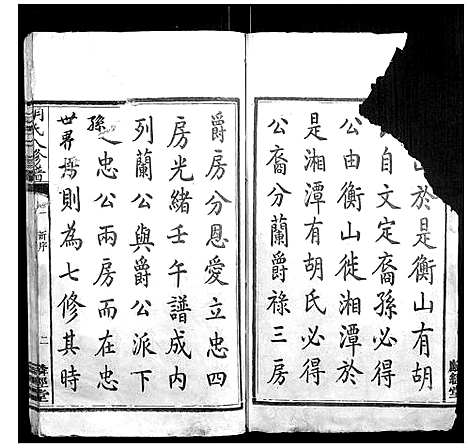 山於是衡山有胡
自文定裔孫必得
公由衡山徙湘潭於
是湘潭有胡氏必得
公裔分蘭爵祿三房
爵房分恩愛立忠四
房光緒壬午譜成内
列蘭公與爵公派下
之忠公兩房而在忠
孫
世界語則為七修其時
氏八修譜
卷一 新序
二
經堂